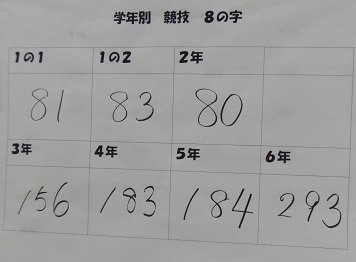 学年別 競技 8の字
1の1 1の2 2年
81 83 80
3年 4年 5年 6年
156 183 184 293